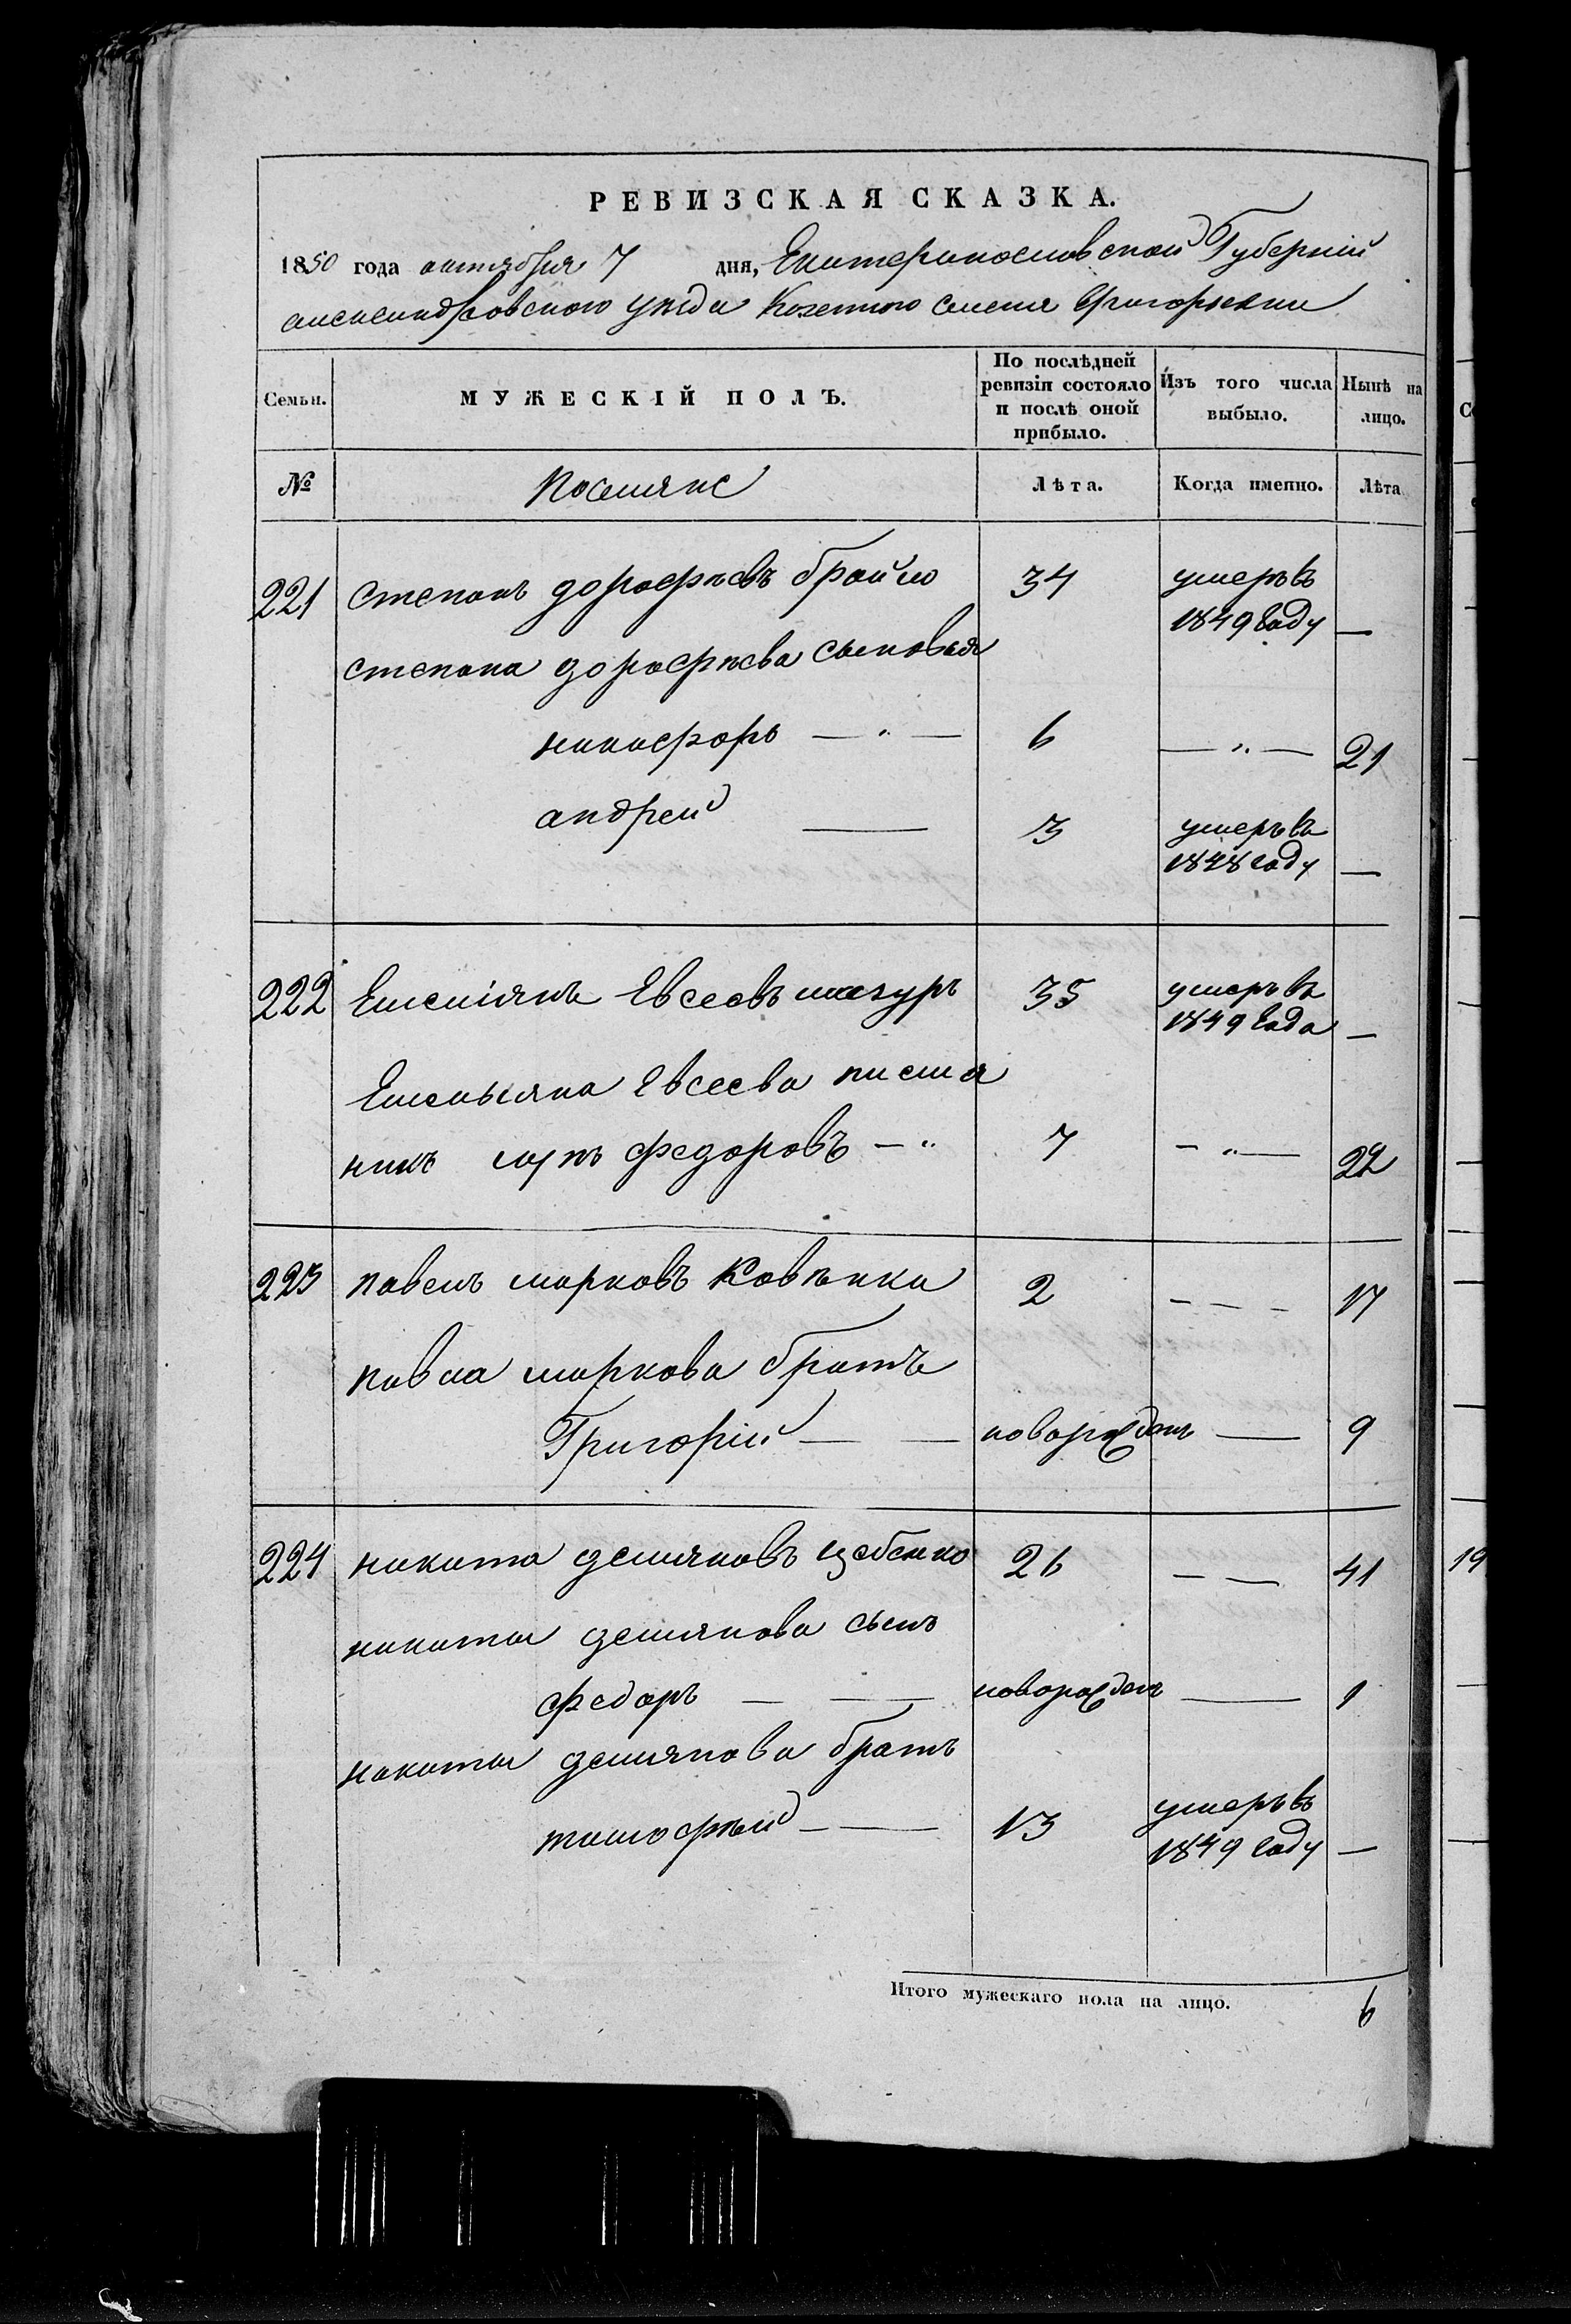 РЕВИЗСКАЯ СКАЗКА.
1850 года октября 7 дня, Екатеринославской Губернии
александровского уезда Козенного селения Григорьевки
Семьи. МУЖЕСКІЙ ПОЛЪ. По послѣдней ревизіи состояло и послѣ оной прибыло. Изъ того числа выбыло. Нынѣ на лицо.
№ Поселяне Лѣта. Когда именно. Лѣта
221 степанъ дорофѣевъ брайло 34 умеръ въ 1849 году —
степана дорофѣева сыновья
никифоръ — „ — 6 — „ — 21
андрей — 3 умеръ въ 1848 году —
222 Емеліянъ Евсеевъ мазуръ 35 умеръ въ 1849 года —
Емельяна Евсеева племя
никъ федоровъ — „ 7 — „ — 22
223 павелъ марковъ Ковѣнка 2 — — — 17
павла маркова братъ
Григорій — — новорожденъ — 9
224 никита демяновъ цебенко 26 — — 41
никиты демянова сынъ
федоръ — — новорожденъ — 1
никиты демянова братъ
тимофѣй — — 13 умеръ въ 1849 году —
Итого мужескаго пола на лицо. 6
19